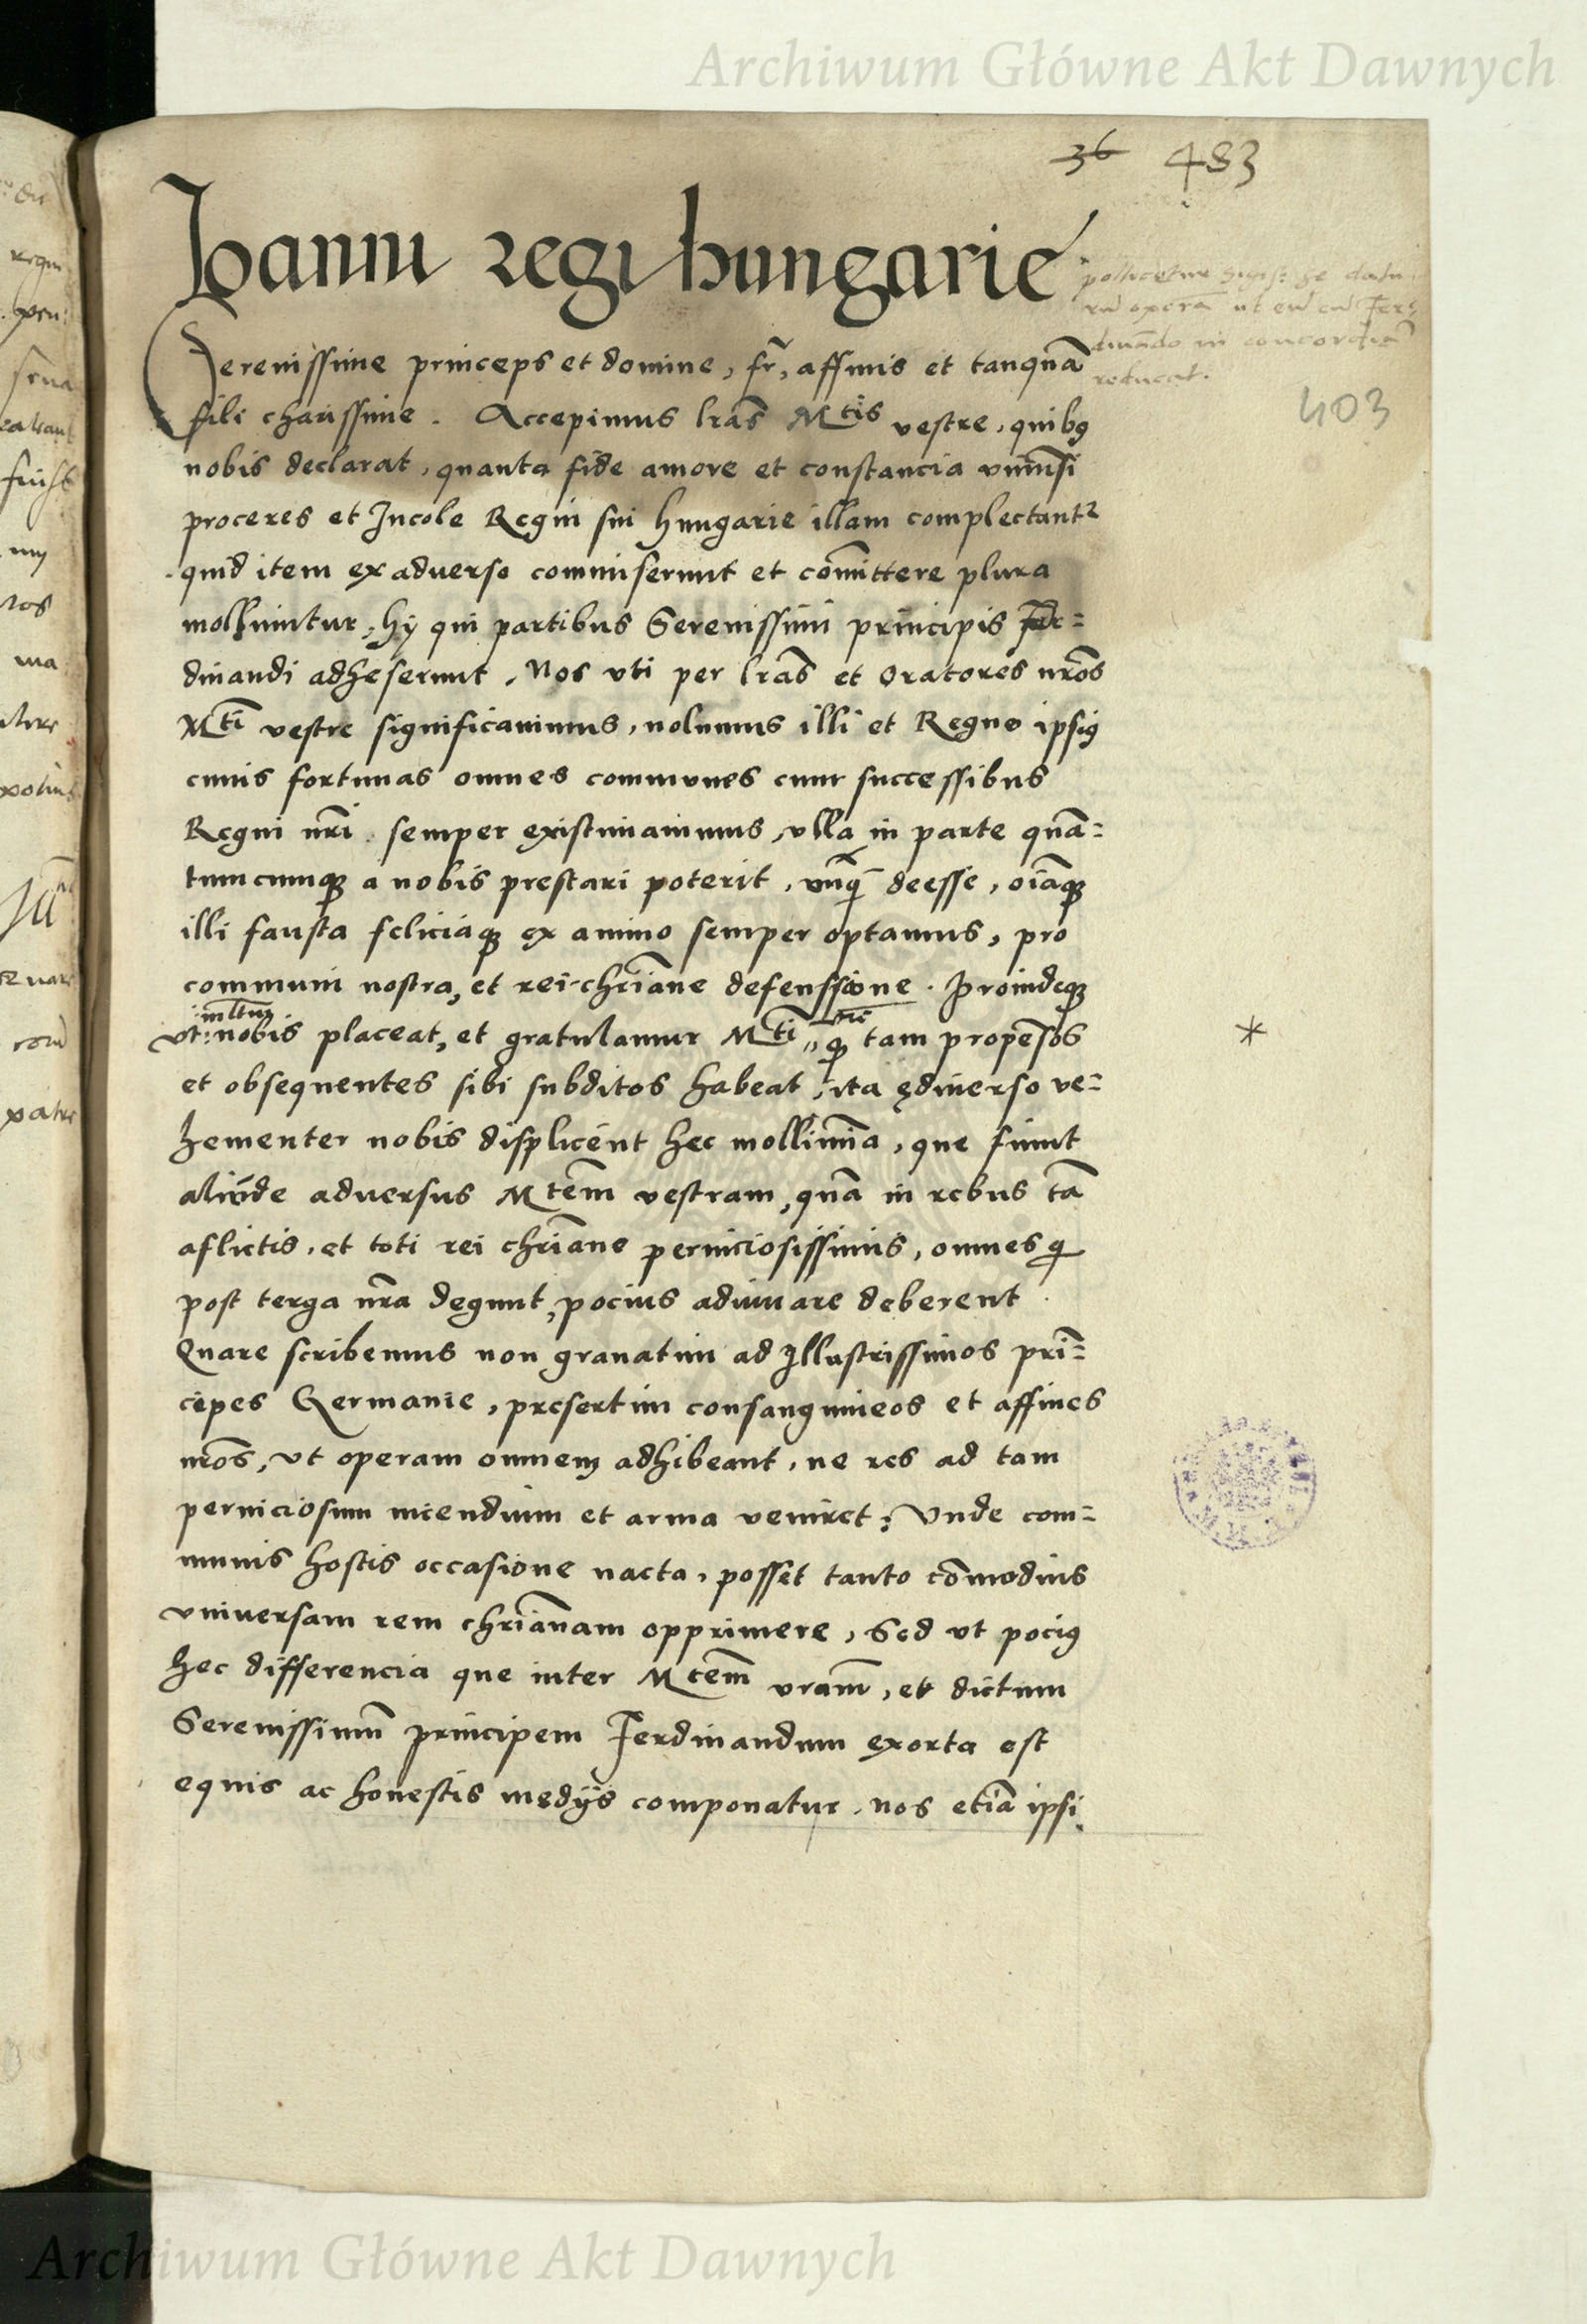 Archiwum Główne Akt Dawnych
36 483
Ioanni regi hungarie
pollicetur Sigis: se datu
rū operā ut eū cū Fer
dinādo in concordiā
reducat.
403
Serenissime princeps et domine, fr̄, affinis et tanquā
fili charissime. Accepimus lrās Mtis vestre, quibꝰ
nobis declarat, quanta fide amore et constancia vniūsi
proceres et Incole Regni sui Hungarie illam complectantr
quid item ex adverso commiserunt et cōmittere plura
moliuntur, hÿ qui partibus Serenissimi principis Fer=
dinandi adheserunt. Nos vti per lrās et Oratores nr̄os
Mti vestre significavimus, nolumus illi et Regno ipsiꝰ
cuius fortunas omnes communes cum successibus
Regni nr̄i semper existimavimus, vlla in parte quā=
tumcumqꝫ a nobis prestari poterit, vnq̄ deesse, oīaqꝫ
illi fausta feliciaqꝫ ex animo semper optamus, pro
communi nostra, et rei chr̄iane defenssione. Proindeqꝫ
ut: multum nobis placeat, et gratulamur Mti vre ꝙ tam propēsos
et obsequentes sibi subditos habeat, ita ędiverso ve=
hementer nobis displicent hec mollimīa, que fiunt
aliūde adversus Mtem̄ vestram, quā in rebus tā
aflictis, et toti rei chr̄iane perniciosissimis, omnes q
post terga nr̄a degunt, pocius adiuvare deberent.
Quare scribemus non gravatim ad Illustrissimos prī=
cipes Germanie, presertim consanguineos et affines
nr̄os, ut operam omnem adhibeant, ne res ad tam
perniciosum incendium et arma veniret: Vnde com=
munis hostis occasione nacta, posset tanto cōmodius
vniversam rem chr̄ianam opprimere, Sed ut pociꝰ
hec differencia que inter Mtem̄ vram̄, et dictum
Serenissimū principem Ferdinandum exorta est
equis ac honestis medÿs componatur, nos etiā ipsi
Archiwum Główne Akt Dawnych